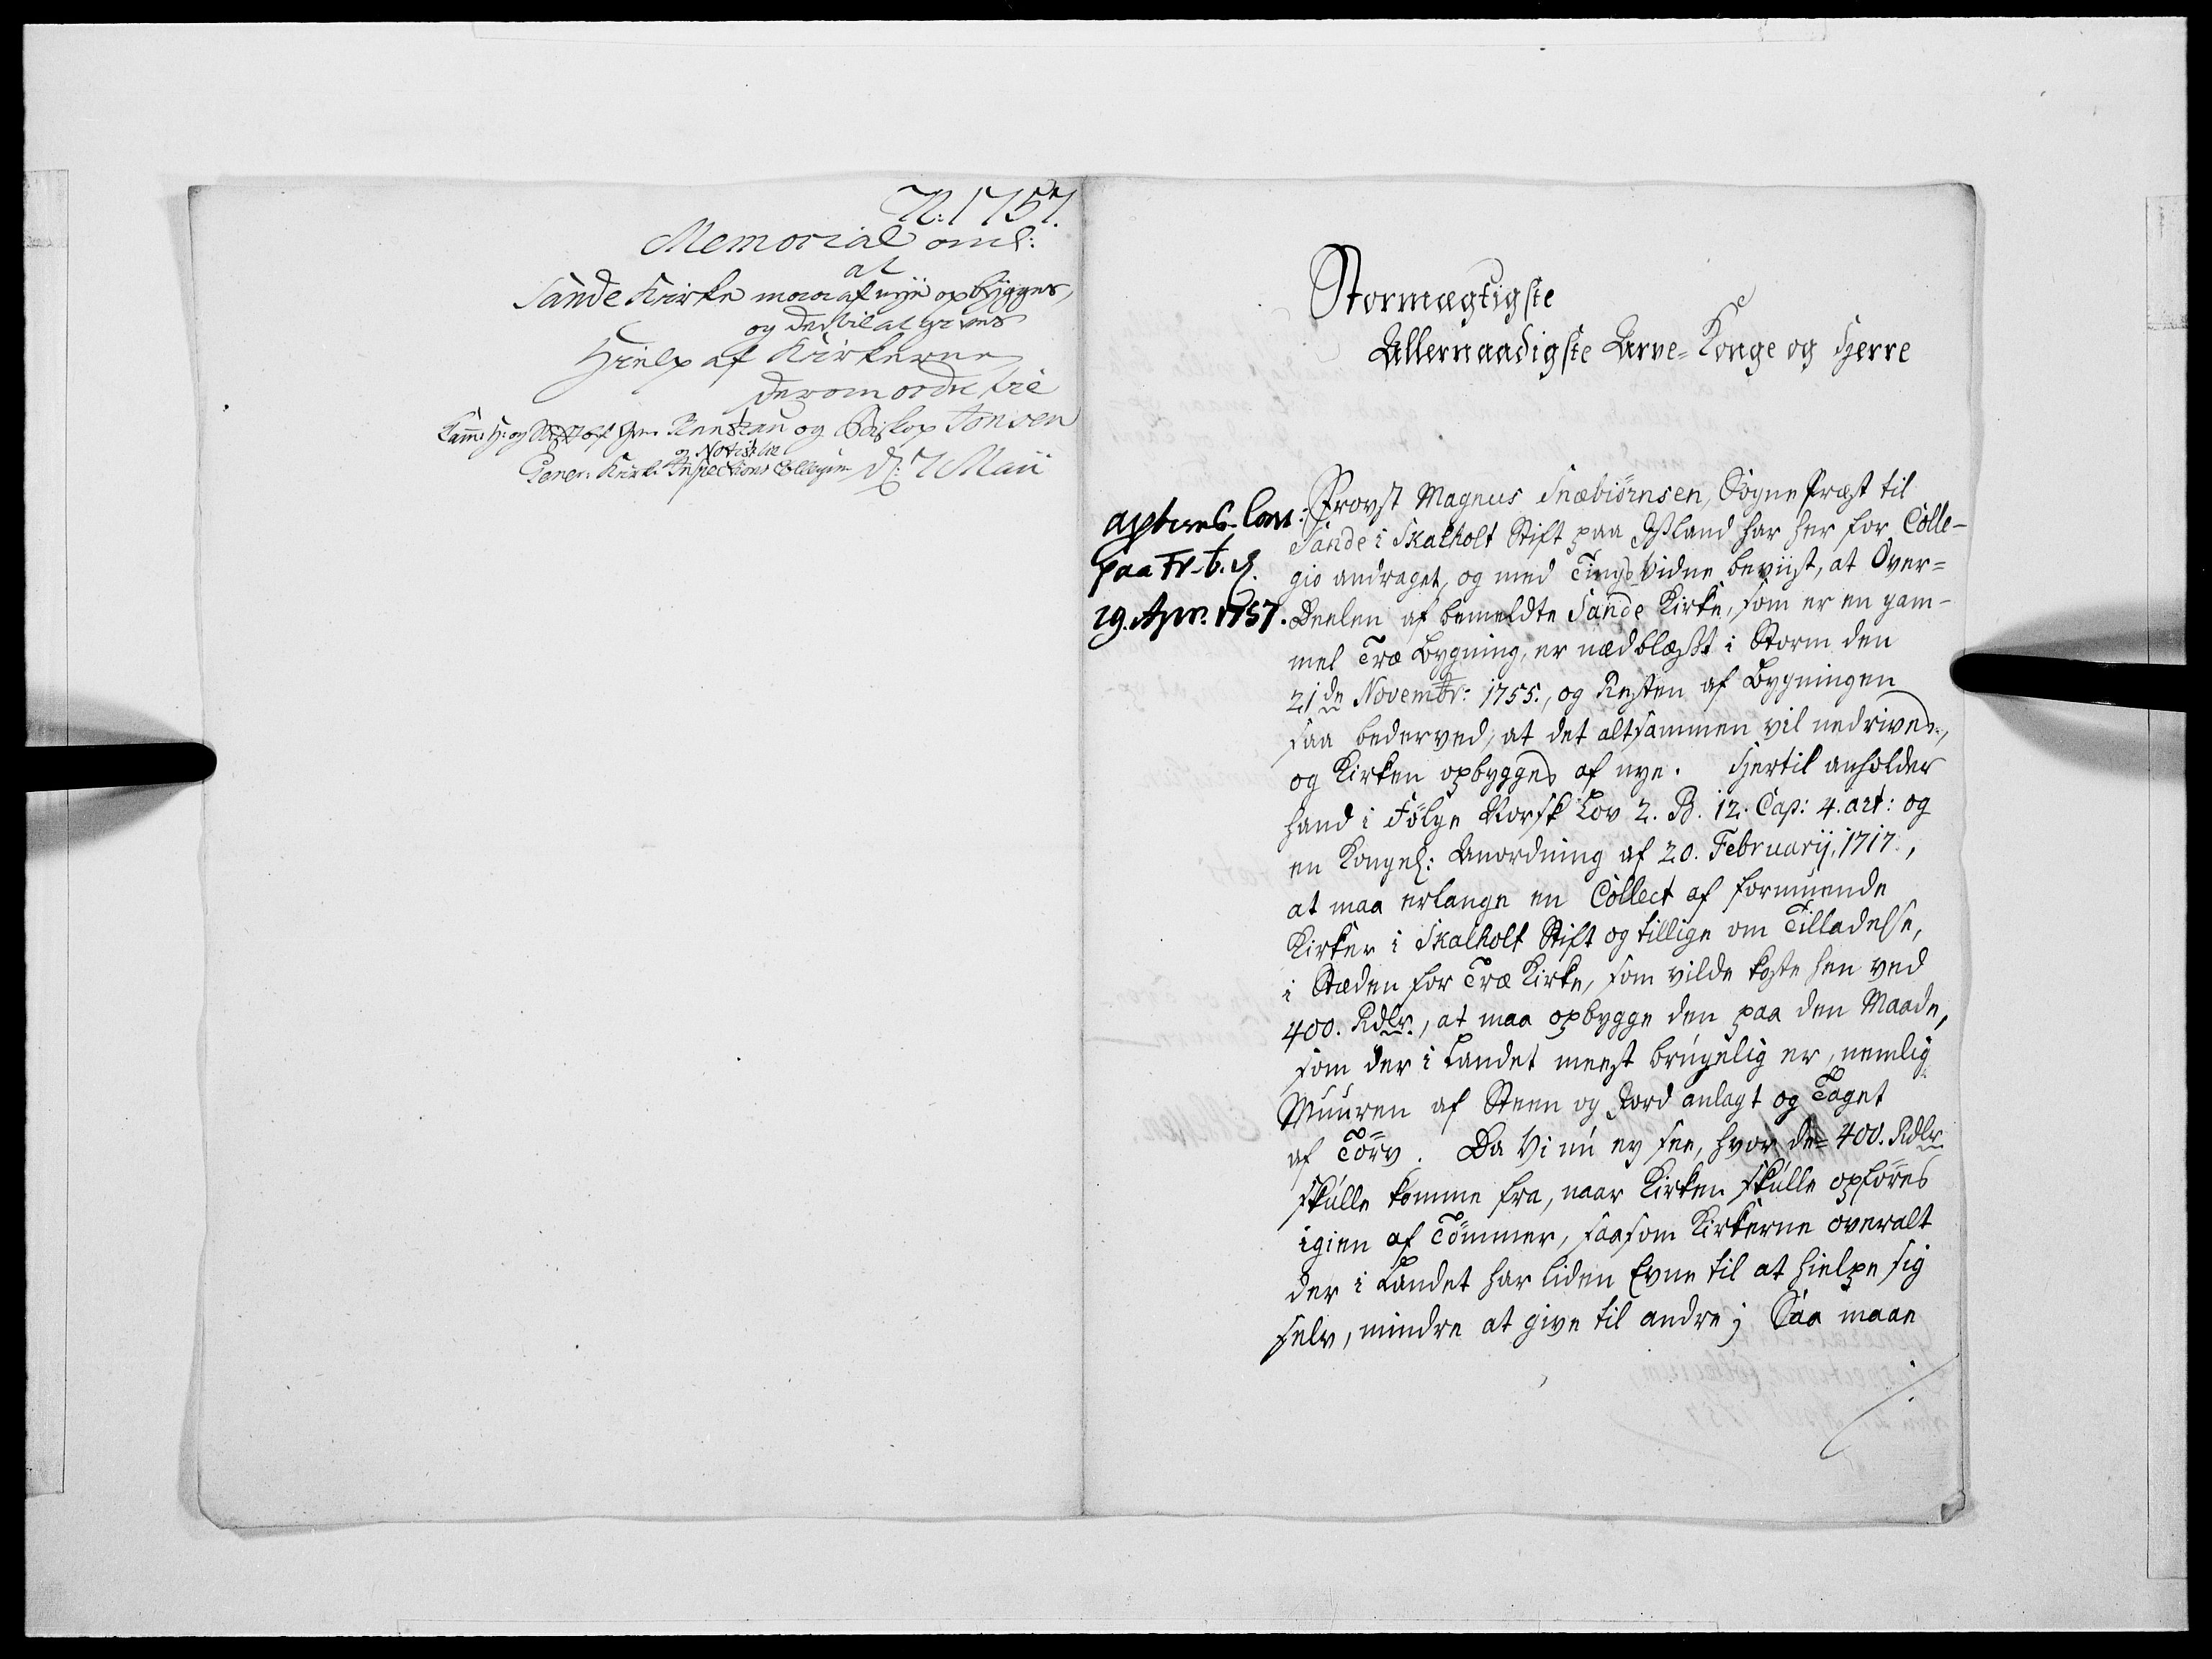 N: 1757.
Memorial om:
at
Sande Kirke maae af nye opbygges,
og dertil at gives
Hielp af Kirkerne
derom ordre til
Kam: H: og Stift af Gr. Rantzau og Biskop Jonsen
og Notits til
Gener. Kirk. Inspections Collegium d: 7 Maii
Stormægtigste
Allernaadigste Arve-Konge og Herre
apberes. Conc:
paa Fr-b. d.
29. Apr. 1757.
Provst Magnus Snæbiörnsen, Sogne Præst til
Sande i Skalholt Stift paa Island har her for Colle-
gio andraget, og med Tings Vidne beviist, at Over-
Deelen af bemeldte Sande Kirke, som er en gam-
mel Træ Bygning, er nedblæst i Storm den
21de Novembr: 1755., og Resten af Bygningen
saa bederved, at det altsammen vil nedrives,
og Kirken opbygges af nye. Hertil anholder
hand i Fölge Norsk Lov 2. B. 12. Cap: 4. art: og
en Kongel: Anordning af 20. Februarij, 1717.,
at maa erlange en Collect af formuende
Kirker i Skalholt Stift og tillige om Tilladelse,
i Stæden for Træ Kirke, som vilde koste hen ved
400. Rdlr., at maa opbygge den paa den Maade,
som der i Landet meest brugelig er, nemlig
Muuren af Steen og Jord anlagt og Taget
af Törv. Da Vi nu ey see, hvor de 400. Rdlr.
skulle komme fra, naar Kirken skulle opföres
igien af Tömmer, saasom Kirkerne overalt
der i Landet har liden Evne til at hielpe sig
selv, mindre at give til andre; Saa maae